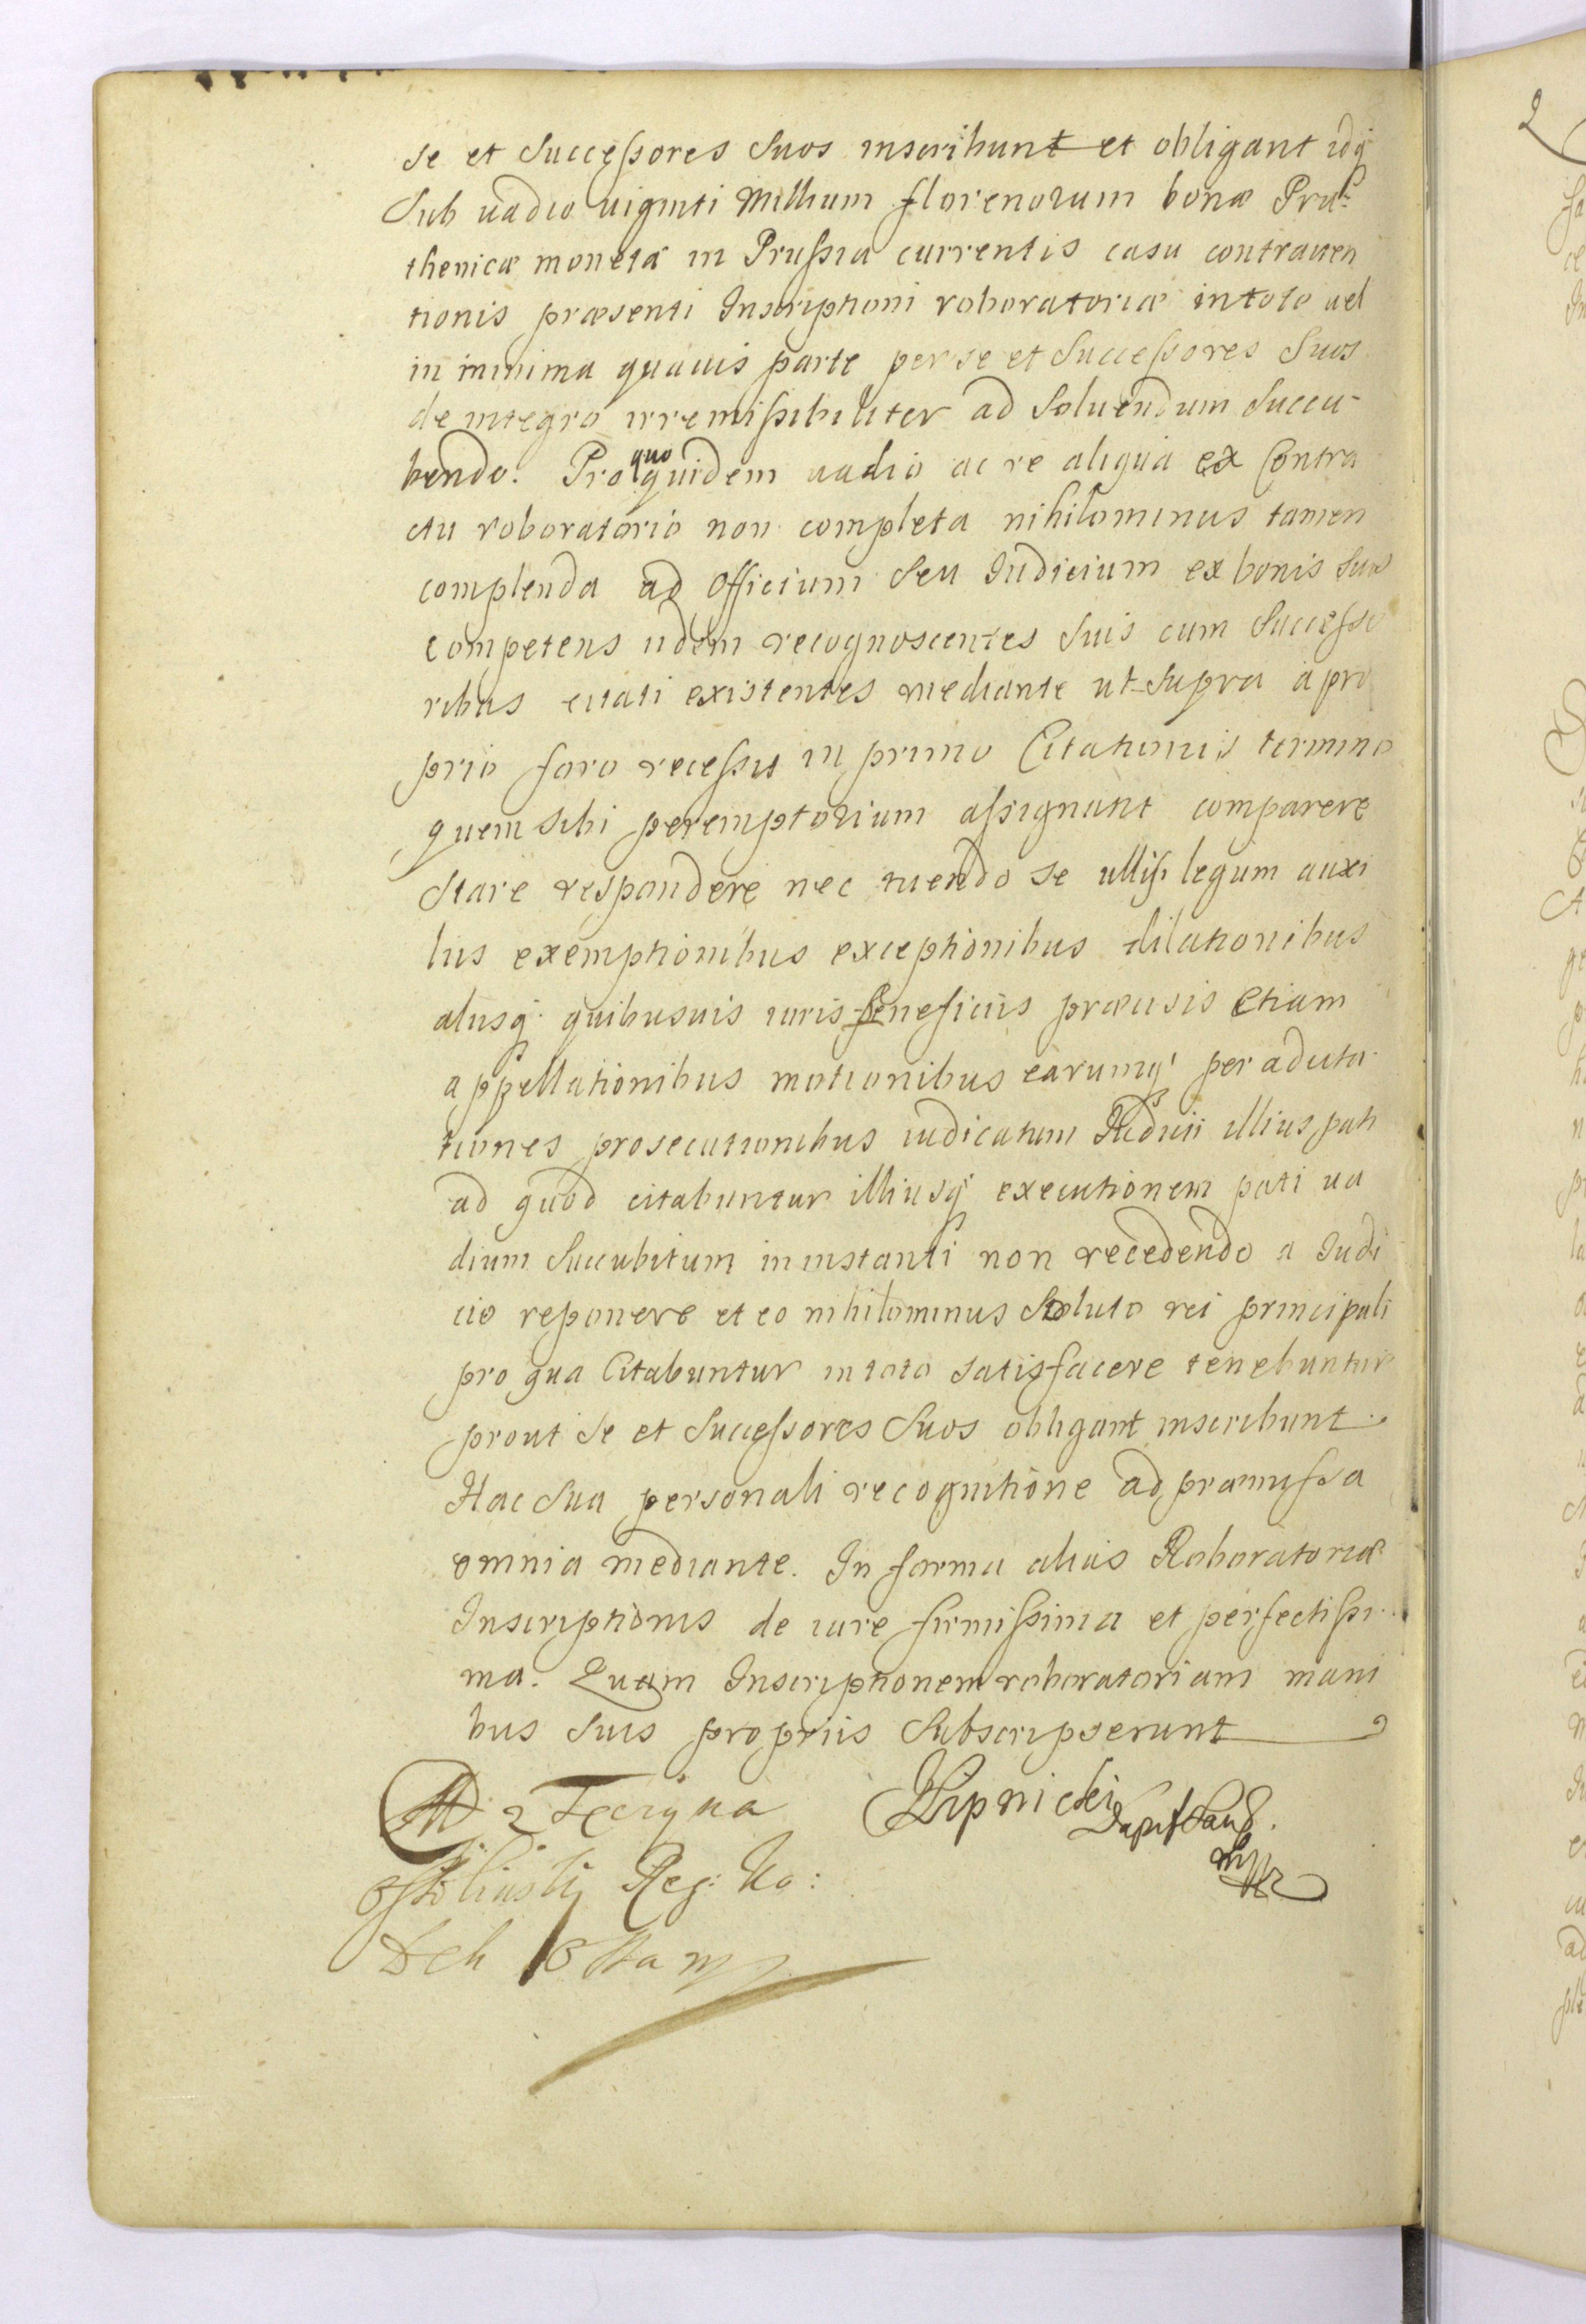 se et Successores Suos inscribunt et obligant idq́
Sub uadio uiginti Millium florenorum bonæ Pru-
thenicæ monetæ in Prussia currentis casu contrauen
tionis præsenti Inscriptioni roboratoriæ in toto uel
in minima quauis parte per se et Successores Suos
de integro irremissibiliter ad Soluendum Succu-
bendo. Pro quo quidem uadio ac re aliqua ex Contra
ctu roboratorio non completa nihilominus tamen
complenda ad Officium Seu Iudicium ex bonis Suis
competens iidem recognoscentes Suis cum Successo
ribus citati existentes mediante ut Supra a pro
prio foro recessu in primo Citationis termino
quem sibi peremptorium assignant comparere
Stare respondere nec tuendo se ullis legum auxi
liis exemptionibus exceptionibus dilationibus
aliisq́ quibusuis iuris beneficiis præcisis Etiam
appellationibus motionibus earumq́ per aducta
tiones prosecutionibus iudicatum Iudicii illius pati
ad quod citabuntur illiusq́ executionem pati ua
dium Succubitum in instanti non recedendo a Iudi
cio reponere et eo nihilominus Soluto rei principali
pro qua Citabuntur in toto satisfacere tenebuntur
prout Se et Successores Suos obligant inscribunt.
Hac Sua personali recognitione ad præmissa
omnia mediante. In forma alias Roboratoriæ
Inscriptionis de iure firmissima et perfectissi
ma. Quam Inscriptionem roboratoriam mani
bus Suis propriis Subscripserunt
Reg:
Lipnicki